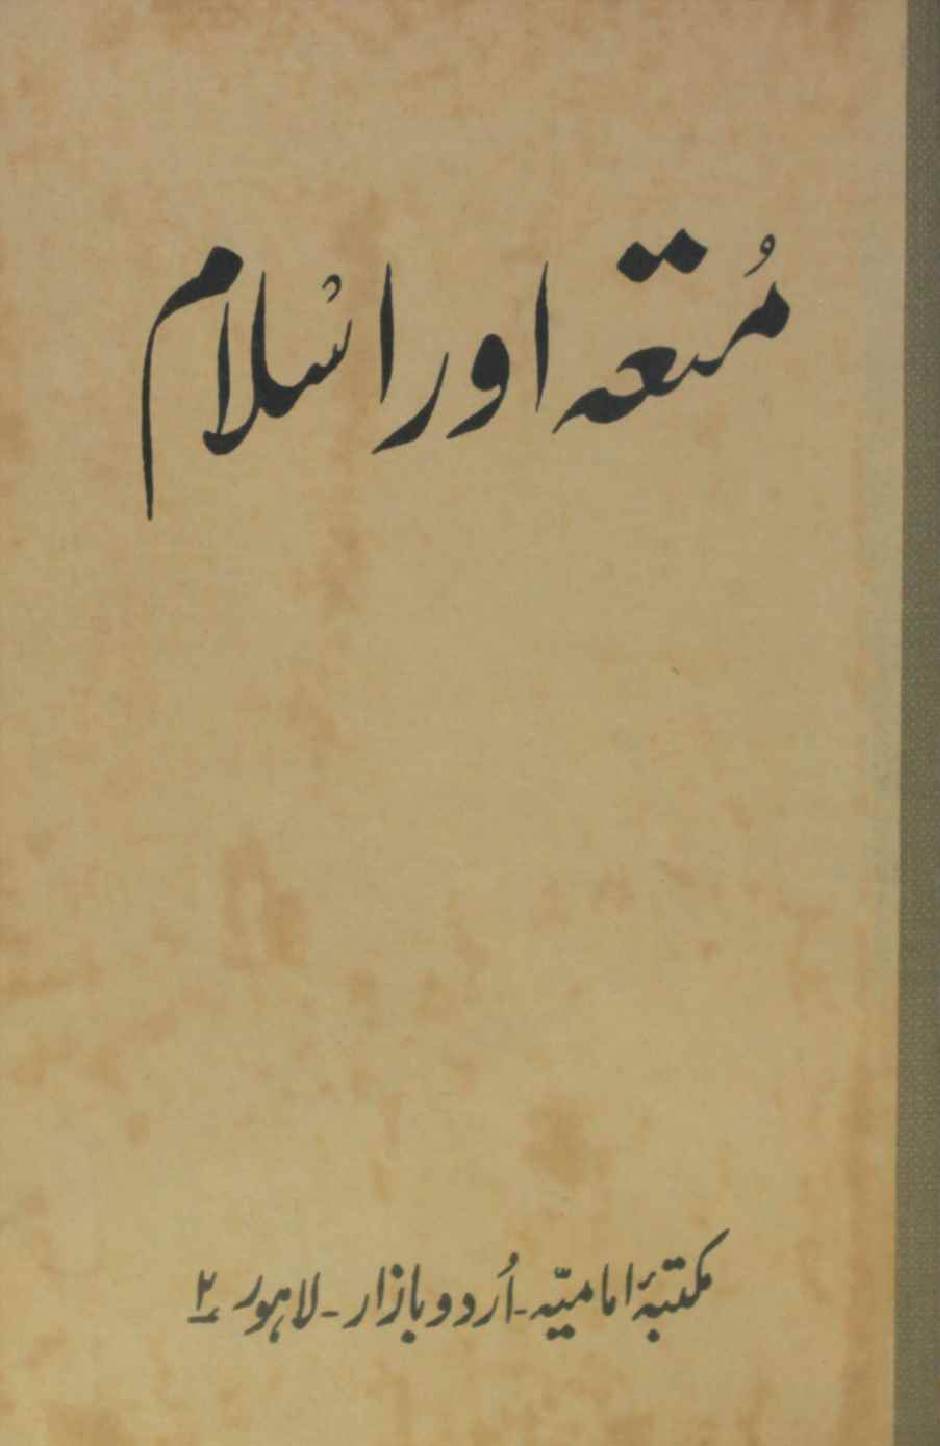 مُتعہ اور اسْلام
مکتبۂ امامیّہ ـ اُردو بازار ـ لاہور ۲